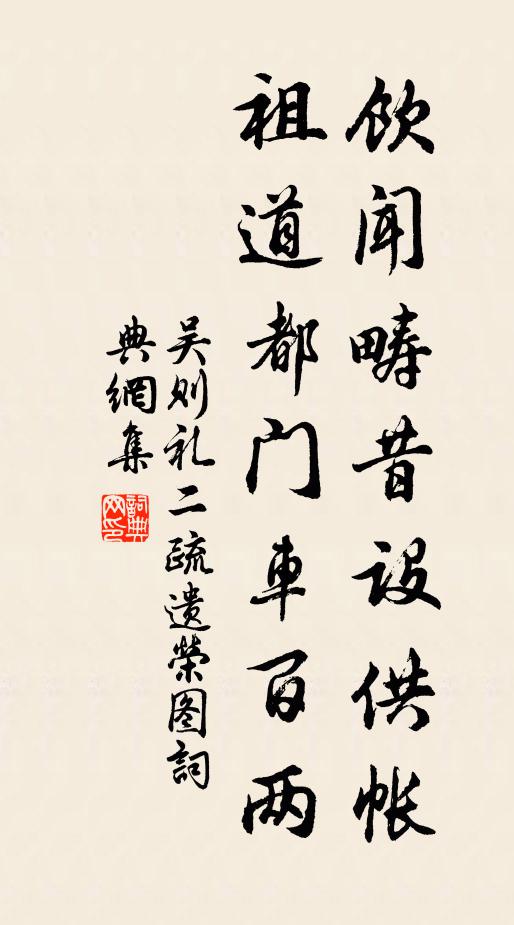 饮闻畴昔设供帐
祖道都门車百两
吴则礼二疏遗荣图詞
典網集
詞典网印